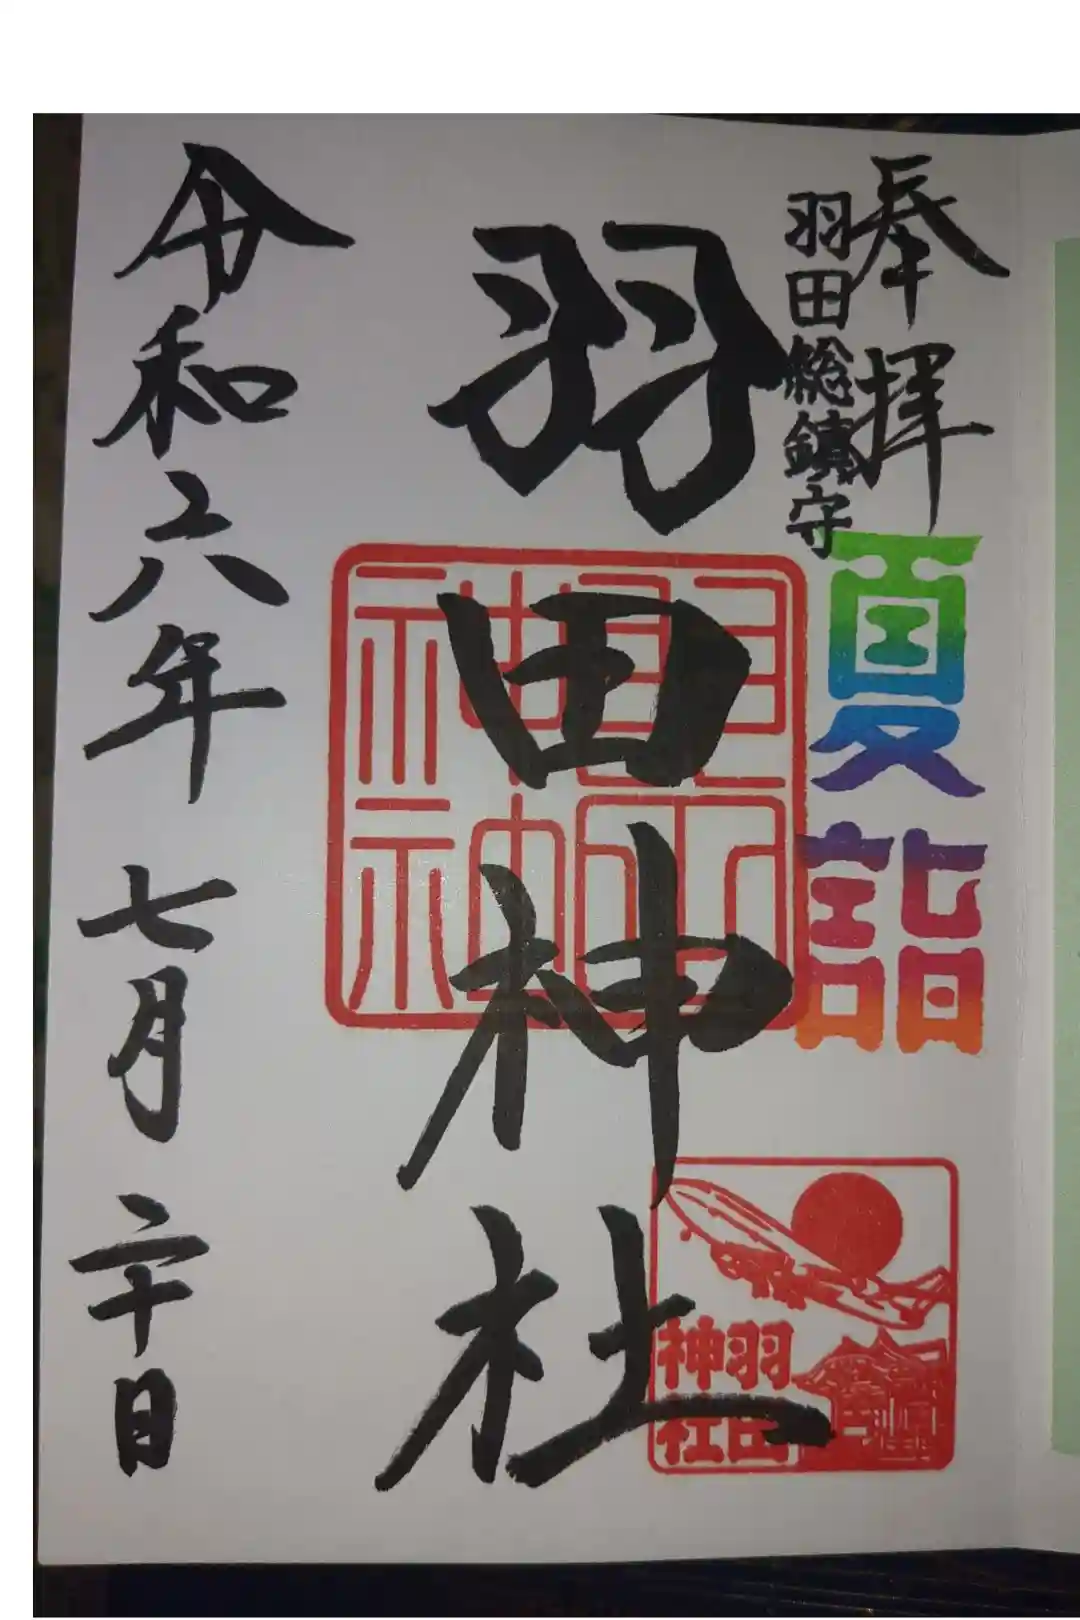 奉拝
羽田総鎮守
夏詣
羽田神社
羽田
神社
羽田
神社
令和六年七月二十日